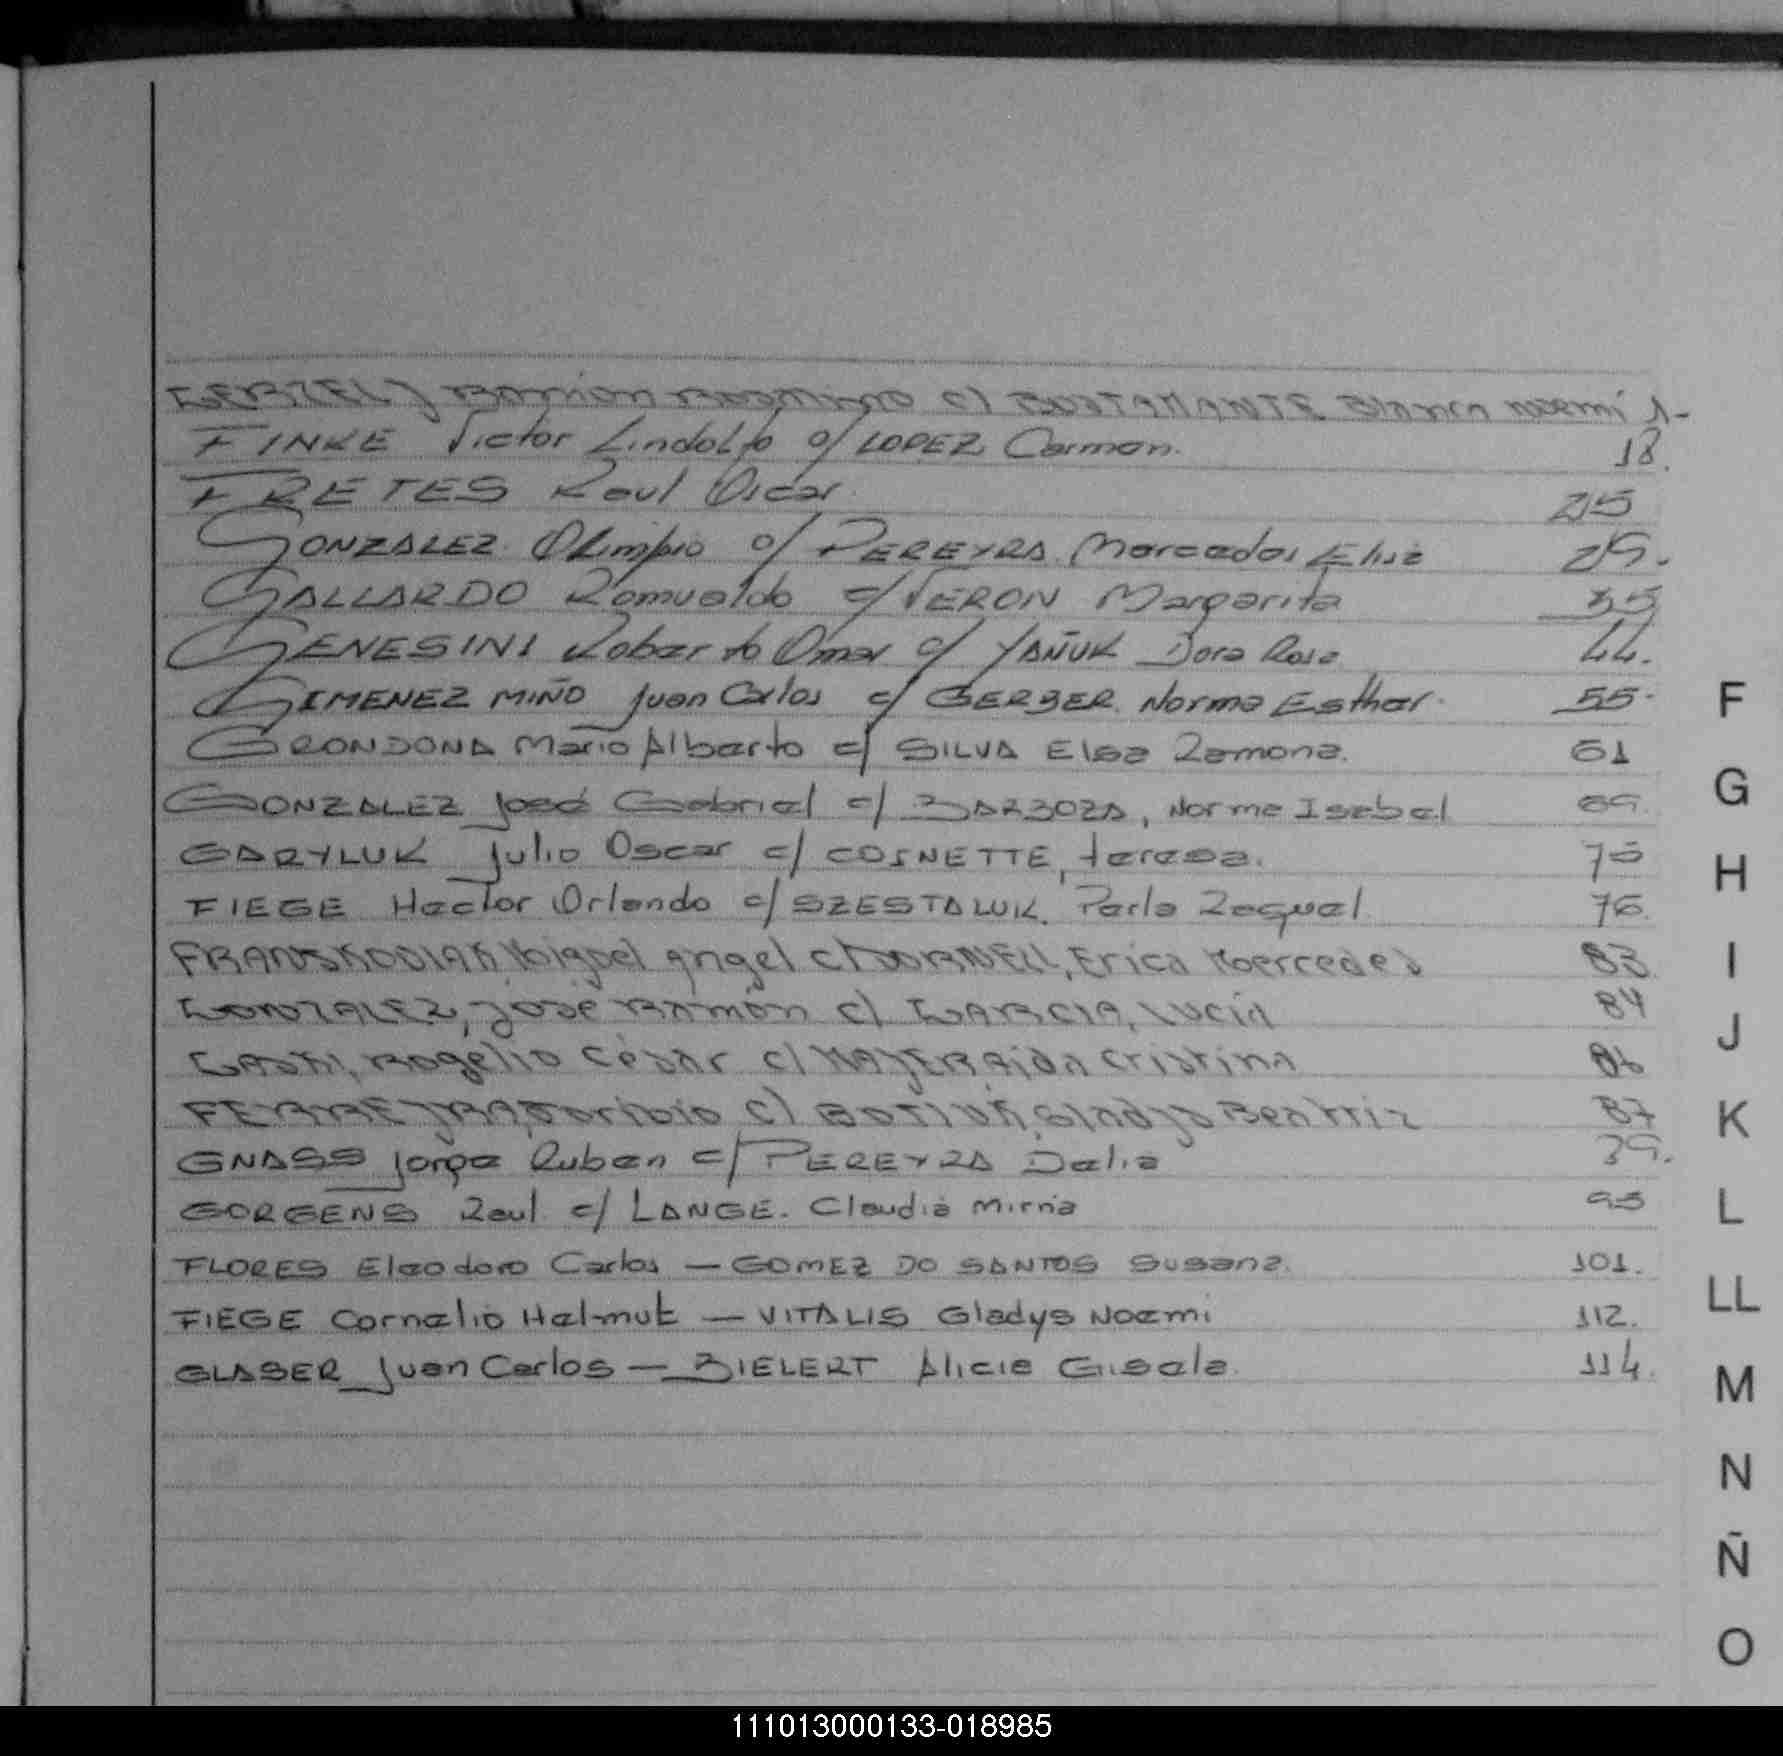 Ramón c/ BUSTAMANTE Blanca noemi 1-
FINKE Victor Lindolfo c/ LOPEZ Carmen. 18.
FRETES Raul Oscar. 25
GONZALEZ Olimpio c/ PEREYRA Mercedes Elisa 29.
GALLARDO Romualdo c/ VERON Margarita 35
GENESINI Roberto Omar c/ YAÑUK Dora Rosa 44.
GIMENEZ MIÑO Juan Carlos c/ GERBER Norma Esther. 55.
GRONDONA Mario Alberto c/ SILVA Elsa Ramona. 61
GONZALEZ José Gabriel c/ BARBOZA, Norma Isabel 69.
GARYLUK Julio Oscar c/ COSNETTE, teresa. 75
FIEGE Hector Orlando c/ SZESTALUK. Perla Raquel. 76.
Miguel Angel Erica Mercedes 83
GONZALEZ, José Ramón c/ GARCIA, Lucia 84
Rogelio César c/ Cristina 86
FERREYRA, c/ Gladys Beatriz 87
GNASS Jorge Ruben c/ PEREYRA Delia 39.
GORGENS Raul. c/ LANGE. Claudia Mirna 95
FLORES Eleodoro Carlos — GOMEZ DO SANTOS Susana. 101.
FIEGE Cornelio Helmut — VITALIS Gladys Noemi 112.
GLASER Juan Carlos — BIELERT Alicia Gisela. 114.
F
G
H
I
J
K
L
LL
M
N
Ñ
O
111013000133-018985